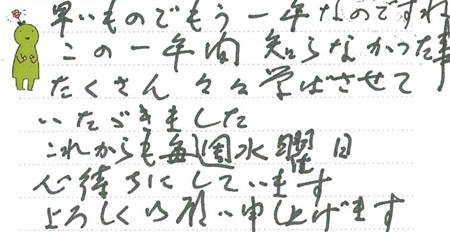 早いものでもう一年なのですね
この一年間 知らなかった事
たくさん 々々学ばさせて
いただきました
これからも毎週水曜日
心待ちにしています
よろしくお願い申し上げます